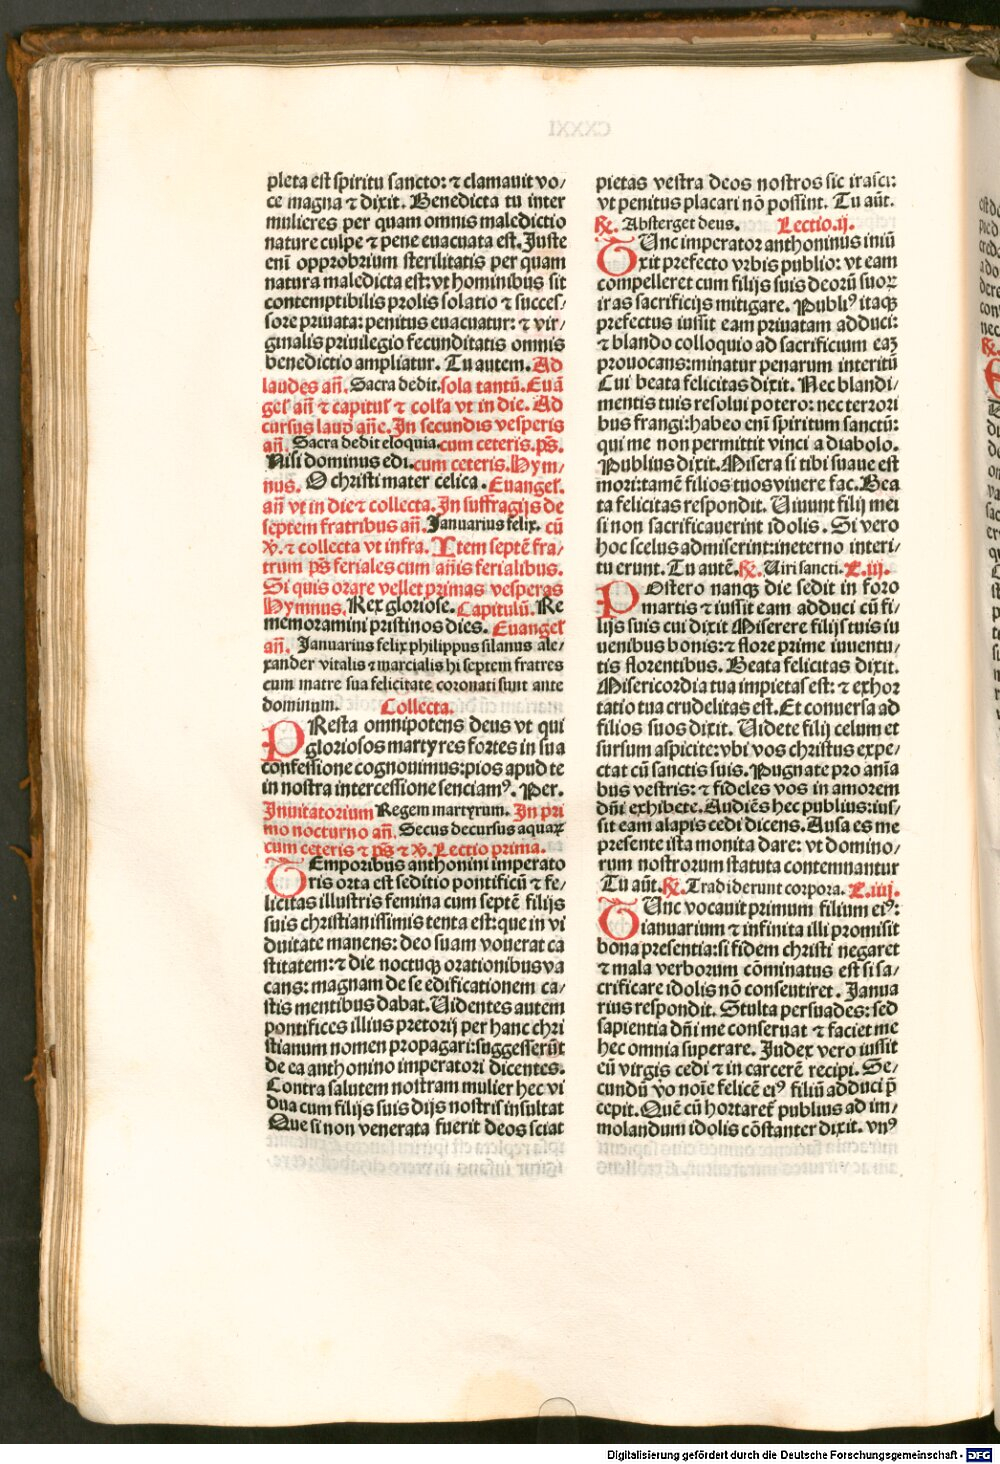 pleta est spiritu sancto: ⁊ clamauit vo/
ce magna ⁊ dixit. Benedicta tu inter
mulieres per quam omnis maledictio
nature culpe ⁊ pene euacuata est. Juste
eni᷑ opprobrium sterilitatis per quam
natura maledicta est: vt hominibus sit
contemptibilis prolis solatio ⁊ succes/
sore priuata: penitus euacuatur: ⁊ vir/
ginalis priuilegio fecunditatis omnis
benedictio ampliatur. Tu autem. Ad
laudes an̄. Sacra dedit. sola tantū. Euā
gel̓ an̄ ⁊ capitul̓ ⁊ coll̓a vt in die. Ad
cursus laud̓ an̄e. In secundis vesperis
an̄. Sacra dedit eloquia. cum ceteris. ps̄.
Nisi dominus edi. cum ceteris. Hym/
nus. O christi mater celica. Euangel̓.
an̄ vt in die ⁊ collecta. In suffragijs de
septem fratribus an̄. Januarius felix. cū
v̄. ⁊ collecta vt infra. Item septē fra/
trum ps̄ feriales cum an̄is ferialibus.
Si quis orare vellet primas vesperas
Hymnus. Rex gloriose. Capitulū. Re
memoramini pristinos dies. Euangel̓
an̄. Januarius felix philippus silanus ale/
xander vitalis ⁊ marcialis hi septem fratres
cum matre sua felicitate coronati sunt ante
dominum. Collecta.
PResta omnipotens deus vt qui
gloriosos martyres fortes in sua
confessione cognouimus: pios apud te
in nostra intercessione senciamꝰ. Per.
Inuitatorium Regem martyrum. In pri
mo nocturno an̄. Secus decursus aquaꝝ
cum ceteris ⁊ ps̄ ⁊ v̄. Lectio prima.
TEmporibus anthonini imperato
ris orta est seditio pontificū ⁊ fe/
licitas illustris femina cum septē filijs
suis christianissimis tenta est: que in vi
duitate manens: deo suam vouerat ca
stitatem: ⁊ die noctuqꝫ orationibus va
cans: magnam de se edificationem ca/
stis mentibus dabat. Uidentes autem
pontifices illius pretorij per hanc chri
stianum nomen propagari: suggesserūt
de ea anthonino imperatori dicentes.
Contra salutem nostram mulier hec vi
dua cum filijs suis dijs nostris insultat
Que si non venerata fuerit deos sciat
pietas vestra deos nostros sic irasci:
vt penitus placari nō possint. Tu aūt.
℟. Absterget deus. Lectio.ij.
TUnc imperator anthoninus iniū
xit prefecto vrbis publio: vt eam
compelleret cum filijs suis deorū suoꝝ
iras sacrificijs mitigare. Publiꝰ itaqꝫ
prefectus iussit eam priuatam adduci:
⁊ blando colloquio ad sacrificium eaꝫ
prouocans: minatur penarum interitū
Cui beata felicitas dixit. Nec blandi/
mentis tuis resolui potero: nec terrori
bus frangi: habeo eni᷑ spiritum sanctū:
qui me non permittit vinci a diabolo.
Publius dixit. Misera si tibi suaue est
mori: tamē filios tuos viuere fac. Bea
ta felicitas respondit. Uiuunt filij mei
si non sacrificauerint idolis. Si vero
hoc scelus admiserint: in eterno interi/
tu erunt. Tu autē. ℟. Uiri sancti. L.iij.
POstero nanqꝫ die sedit in foro
martis ⁊ iussit eam adduci cū fi/
lijs suis cui dixit Miserere filijs tuis iu
uenibus bonis: ⁊ flore prime iuuentu/
tis florentibus. Beata felicitas dixit.
Misericordia tua impietas est: ⁊ exhor
tatio tua crudelitas est. Et conuersa ad
filios suos dixit. Uidete filij celum et
sursum aspicite: vbi vos christus expe/
ctat cū sanctis suis. Pugnate pro ani᷑a
bus vestris: ⁊ fideles vos in amorem
dn̄i exhibete. Audiēs hec publius: ius/
sit eam alapis cedi dicens. Ausa es me
presente ista monita dare: vt domino/
rum nostrorum statuta contemnantur
Tu aūt. ℟. Tradiderunt corpora. L.iiij.
TUnc vocauit primum filium eiꝰ:
ianuarium ⁊ infinita illi promisit
bona presentia: si fidem christi negaret
⁊ mala verborum cōminatus est si sa/
crificare idolis nō consentiret. Janua
rius respondit. Stulta persuades: sed
sapientia dn̄i me conseruat ⁊ faciet me
hec omnia superare. Judex vero iussit
eū virgis cedi ⁊ in carcerē recipi. Se/
cundū v̄o noi᷑e felicē eiꝰ filiū adduci p̄
cepit. Quē cū hortaret᷑ publius ad im/
molandum idolis cōstanter dixit. vnꝰ
Digitalisierung gefördert durch die Deutsche Forschungsgemeinschaft - DFG